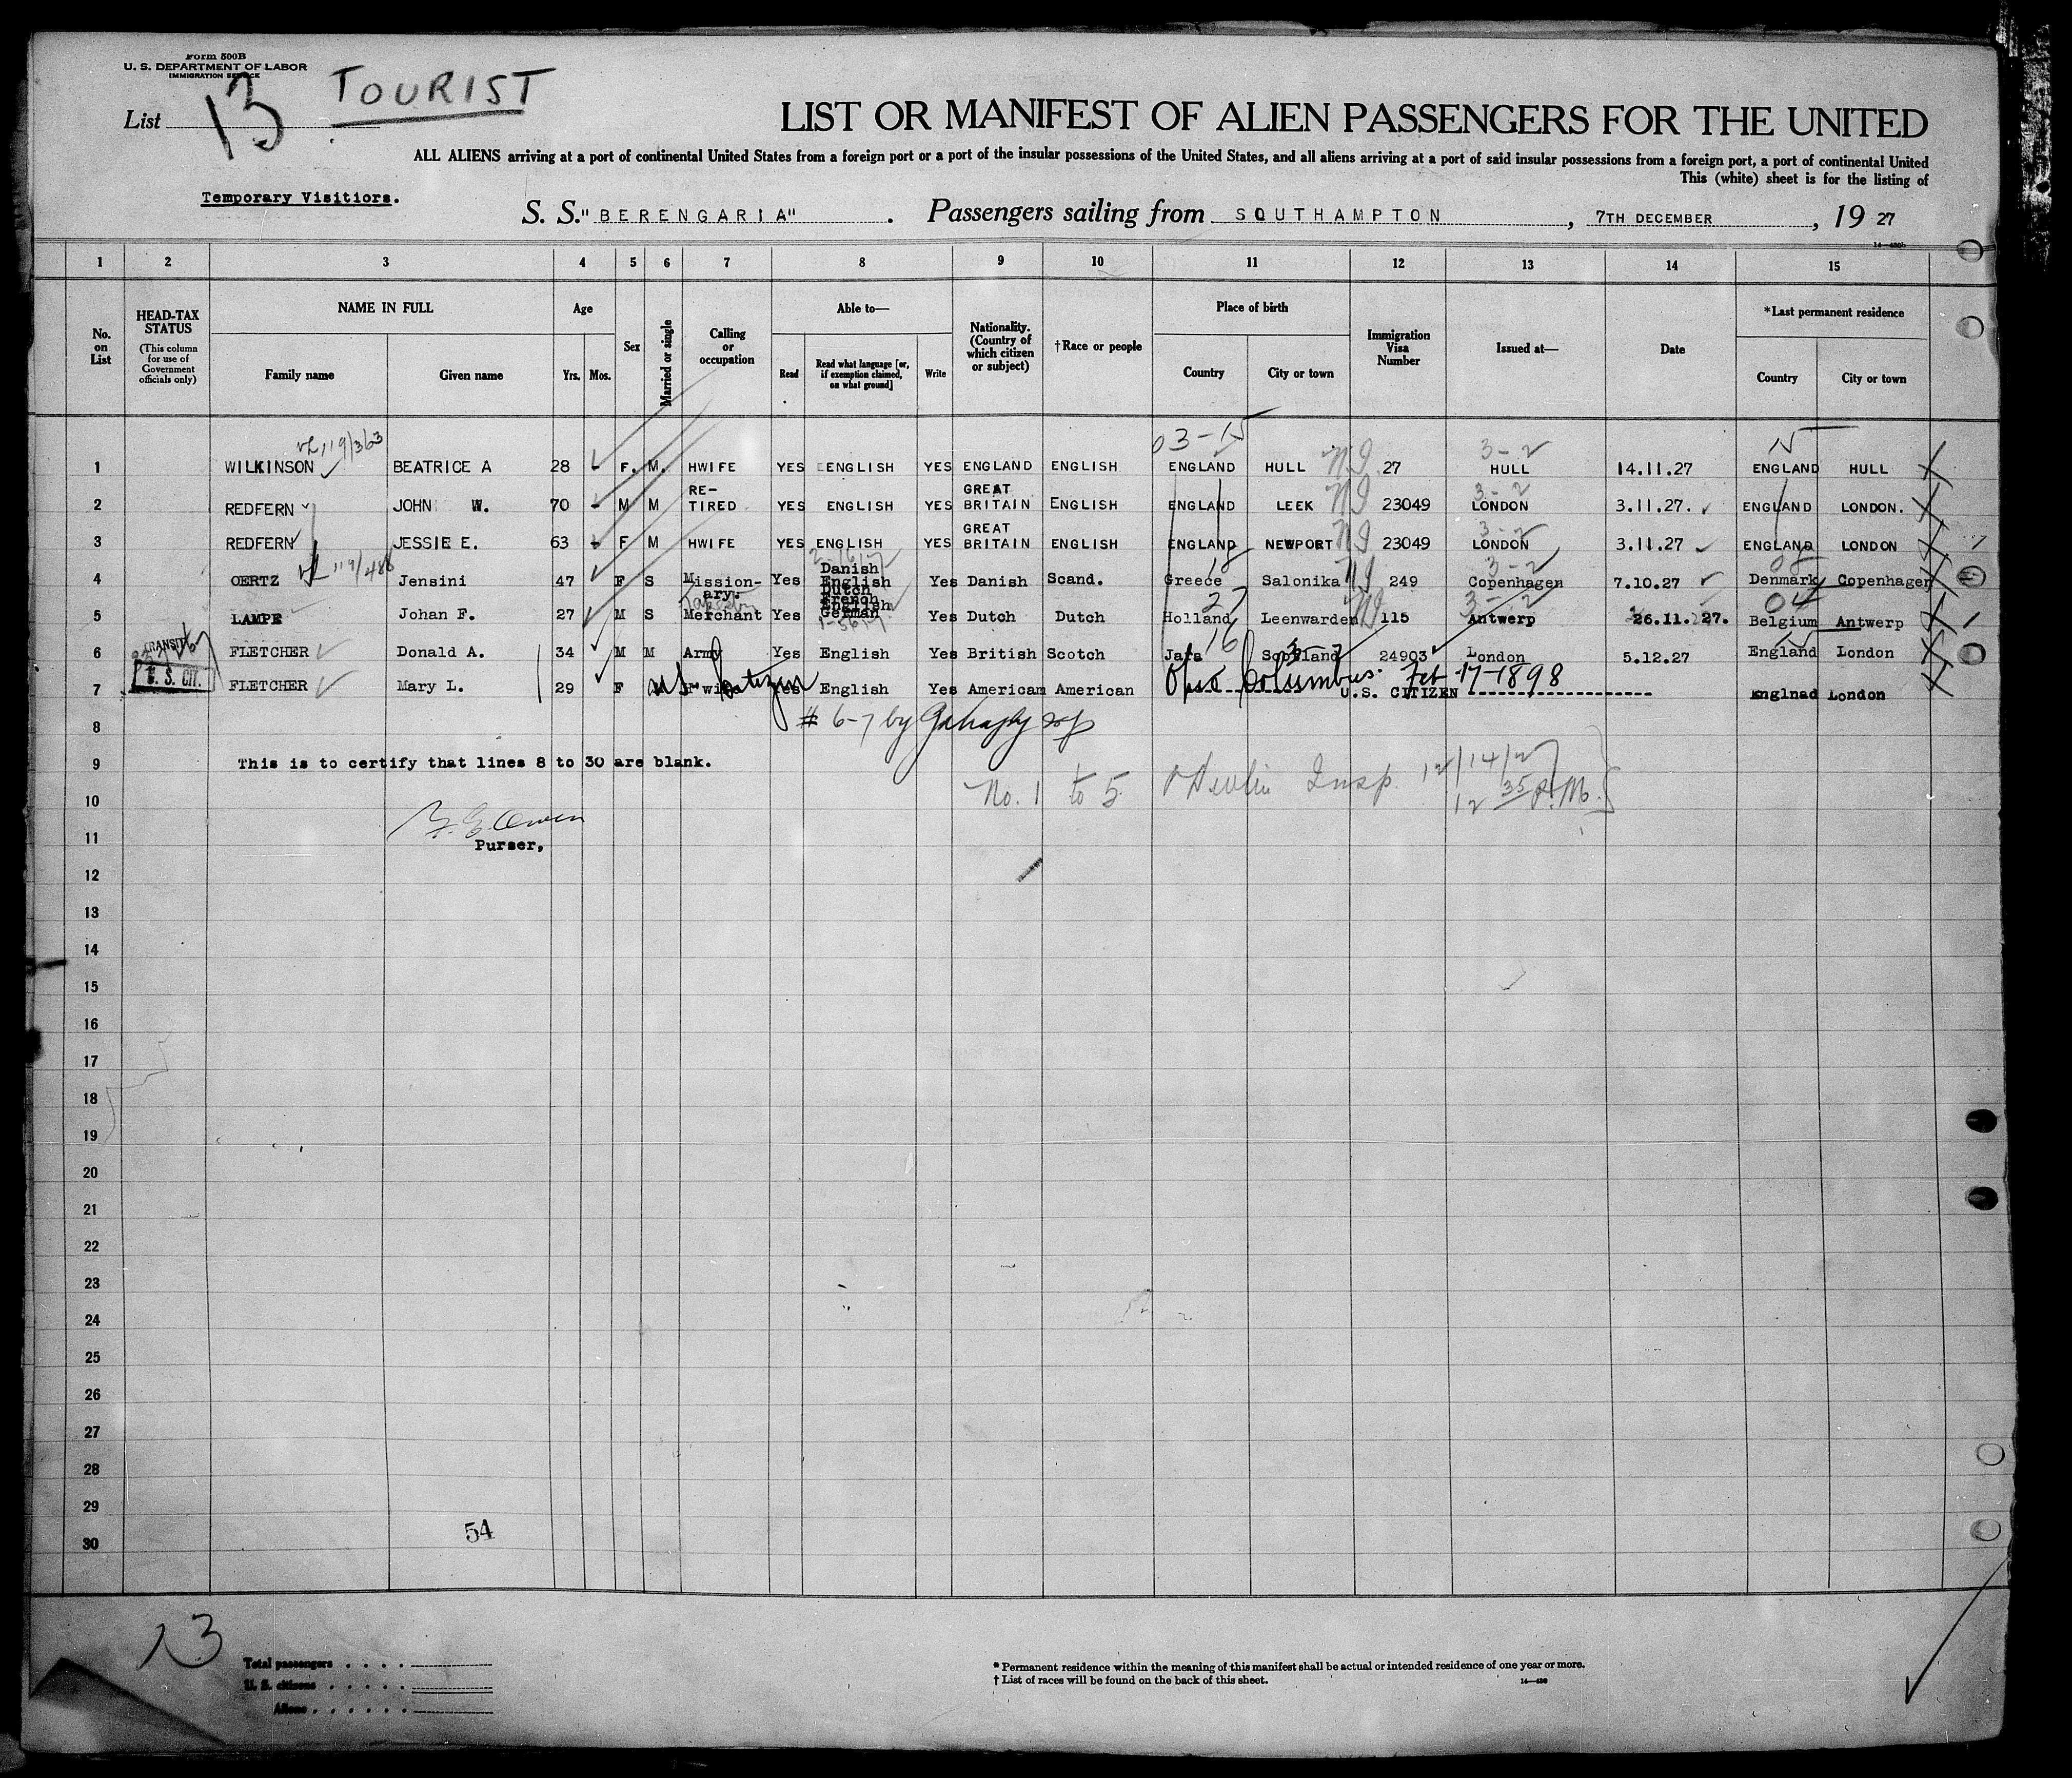 Form 500B
U. S. DEPARTMENT OF LABOR
IMMIGRATION SERVICE
List 13 TOURIST
LIST OR MANIFEST OF ALIEN PASSENGERS FOR THE UNITED
ALL ALIENS arriving at a port of continental United States from a foreign port or a port of the insular possessions of the United States, and all aliens arriving at a port of said insular possessions from a foreign port, a port of continental United
This (white) sheet is for the listing of
Temporary Visitiors.
S. S. "BERENGARIA" . Passengers sailing from SOUTHAMPTON , 7TH DECEMBER , 19 27
1 2 3 4 5 6 7 8 9 10 11 12 13 14 15
No. on List
HEAD-TAX STATUS (This column for use of Government officials only)
NAME IN FULL
Family name Given name
Age
Yrs. Mos.
Sex
Married or single
Calling or occupation
Able to—
Read Read what language [or, if exemption claimed, on what ground] Write
Nationality. (Country of which citizen or subject)
†Race or people
Place of birth
Country City or town
Immigration Visa Number
Issued at—
Date
*Last permanent residence
Country City or town
119/363 03-15 3-2 15
1 WILKINSON BEATRICE A 28 - F. M. HWIFE YES ENGLISH YES ENGLAND ENGLISH ENGLAND HULL 27 HULL 14.11.27 ENGLAND HULL
2 REDFERN JOHN W. 70 - M M RE-TIRED YES ENGLISH YES GREAT BRITAIN ENGLISH ENGLAND LEEK 23049 3-2 LONDON 3.11.27. ENGLAND LONDON.
3 REDFERN JESSIE E. 63 - F M HWIFE YES ENGLISH YES GREAT BRITAIN ENGLISH ENGLAND NEWPORT 23049 3-2 LONDON 3.11.27 ENGLAND LONDON
119/486
4 OERTZ Jensini 47 F S Mission-ary. Yes Danish English Yes Danish Scand. Greece Salonika 249 3-2 Copenhagen 7.10.27 Denmark Copenhagen
5 LAMPE Johan F. 27 M S Merchant Yes Dutch French English German Yes Dutch Dutch Holland Leenwarden 115 3-2 Antwerp 26.11.27. Belgium Antwerp
TRANSIT
6 FLETCHER Donald A. 34 M M Army Yes English Yes British Scotch Jafa Scotland 24903 London 5.12.27 England London
U. S. CIT.
7 FLETCHER Mary L. 29 F M Yes English Yes American American Ohio Columbus. Feb-17-1898 U.S. CITIZEN Englnad London
US Citizen
8
# 6-7 by
9 This is to certify that lines 8 to 30 are blank.
No. 1 to 5 Insp. 12/14/27
12 35 P.M.
10
11
Purser,
12
13
14
15
16
17
18
19
20
21
22
23
24
25
26
27
28
29
54
30
13
Total passengers
U. S. citizens
Aliens
* Permanent residence within the meaning of this manifest shall be actual or intended residence of one year or more.
† List of races will be found on the back of this sheet.